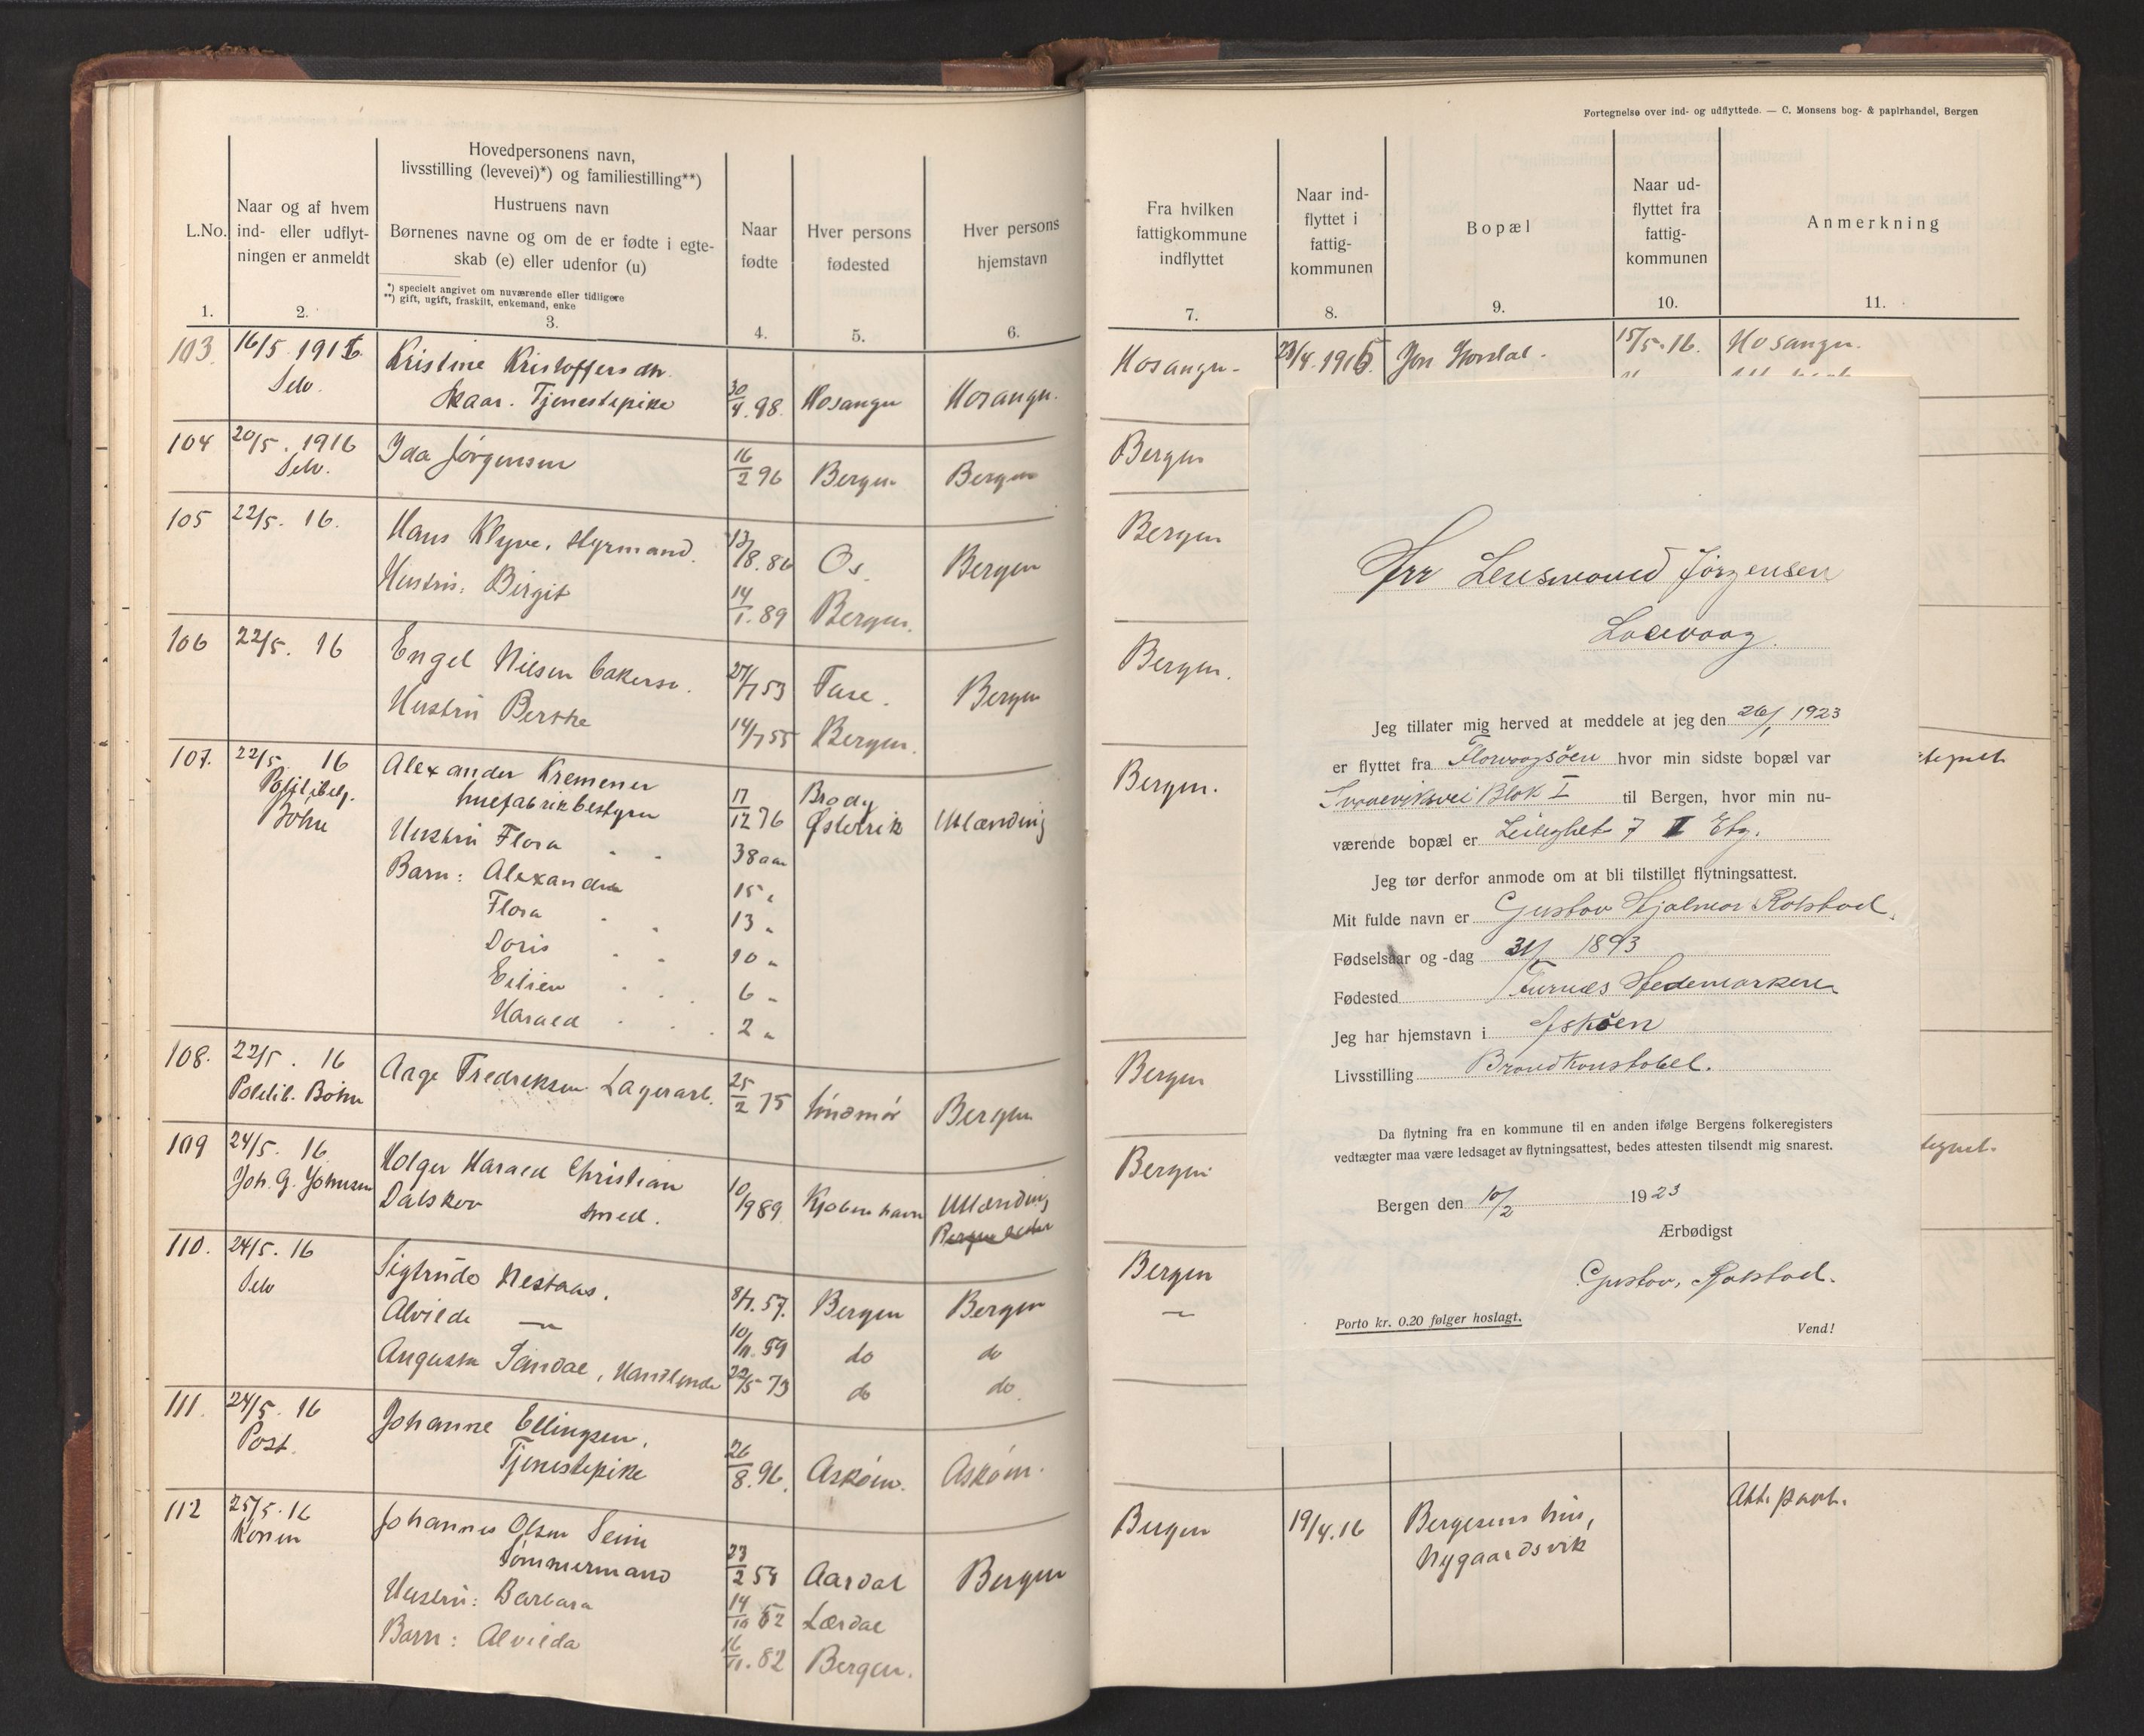 Fortegnelse over ind- og udflyttede. — C. Monsens bog- & papirhandel, Bergen
L.No.
1.
Naar og af hvem
ind- eller udflyt-
ningen er anmeldt
2.
Hovedpersonens navn,
livsstilling (levevei)*) og familiestilling**)
Hustruens navn
Børnenes navne og om de er fødte i egte-
skab (e) eller udenfor (u)
*) specielt angivet om nuværende eller tidligere
**) gift, ugift, fraskilt, enkemand, enke
3.
Naar
fødte
4.
Hver persons
fødested
5.
Hver persons
hjemstavn
6.
Fra hvilken
fattigkommune
indflyttet
7.
Naar ind-
flyttet i
fattig-
kommunen
8.
Bopæl
9.
Naar ud-
flyttet fra
fattig-
kommunen
10.
Anmerkning
11.
103 16/5 1916 Kristine Kristoffersdtr. Hosangr. 23/4.1916 15/5.16. Hosangr.
Selv. Skaar. Tjenestepike 30/4.98 Hosangr Hosangr.
104 20/5. 1916 Ida Jørgensen 16/2 96 Bergen Bergen Bergen
Selv.
105 22/5. 16. Hans Klyve, styrmand. 13/8.86 Os. Bergen Bergen
Hustru: Birgit 14/1.89 Bergen.
106 22/5. 16 Engel Nilsen 27/7 53 Bergen Bergen.
Hustru Berthe 14/7 55 Bergen.
107. 22/5 16 Alexander Kremener Brody Bergen.
Bøhn huefabrikbestyrer 17/12 76 Østerrik Utlænding
Hustru Flora 38 aar
Barn: Alexander 15 "
Flora 13 "
Doris 10 "
6 "
Harald 2 "
108. 22/5. 16 Aage Fredriksen Lagerarb. 25/2 75 Bergen Bergen
Politib. Bøhn
109 24/5. 16 Holger Harald Christian Bergen
Joh. G. Johnsen Dalskov smed. 10/9 89 Kjøbenhavn Utlænding
110. 24/5. 16 Sigtrude Nestaas. 8/7.57. Bergen Bergen Bergen
Selv Alvilde —"— 10/11.59 do do —"—
Augusta Sandal, Handlende 22/5 73 do do
111. 24/5. 16 Johanne Ellingsen,
Post. Tjenestepike 26/8.96. Askøen. Askøen.
Att. paat.
112 25/5.16 Johannes Olsen Seim Bergen 19/4.16 Bergesens hus,
Konen Tømmermand 23/2 54 Aardal Bergen Nygaardsvik
Hustru: Barbara 14/10 52 Lærdal
Barn: Alvilda 16/11.82 Bergen.
Hrr Lensmand Jørgensen
Laxevaag.
Jeg tillater mig herved at meddele at jeg den 26/1 1923
er flyttet fra Florvaagsøen hvor min sidste bopæl var
Blok I til Bergen, hvor min nu-
værende bopæl er Leilighet 7 II Etg.
Jeg tør derfor anmode om at bli tilstillet flytningsattest.
Mit fulde navn er Gustav Hjalmar Rolstad.
Fødselsaar og -dag 1893
Fødested Furnæs Hedemarken
Jeg har hjemstavn i Askøen
Livsstilling Brandkonstabel.
Da flytning fra en kommune til en anden ifølge Bergens folkeregisters
vedtægter maa være ledsaget av flytningsattest, bedes attesten tilsendt mig snarest.
Bergen den 10/2 1923
Ærbødigst
Gustav, Rolstad.
Porto kr. 0.20 følger hoslagt.
Vend!